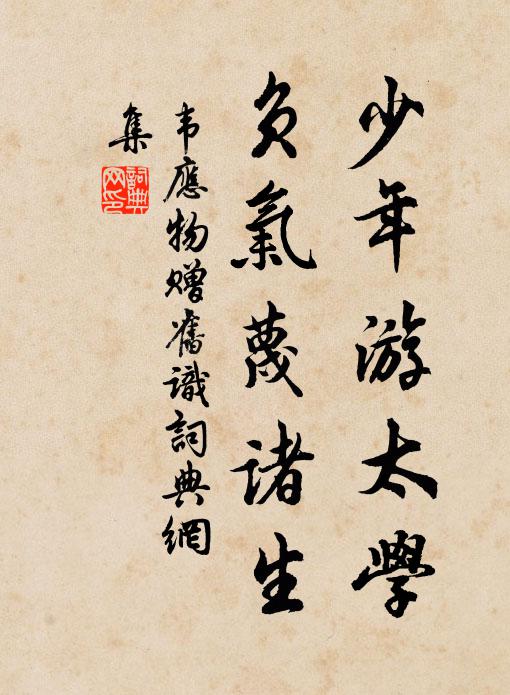 少年游太學
負氣蔑諸生
韦應物贈舊識詞典網
集
詞典網印